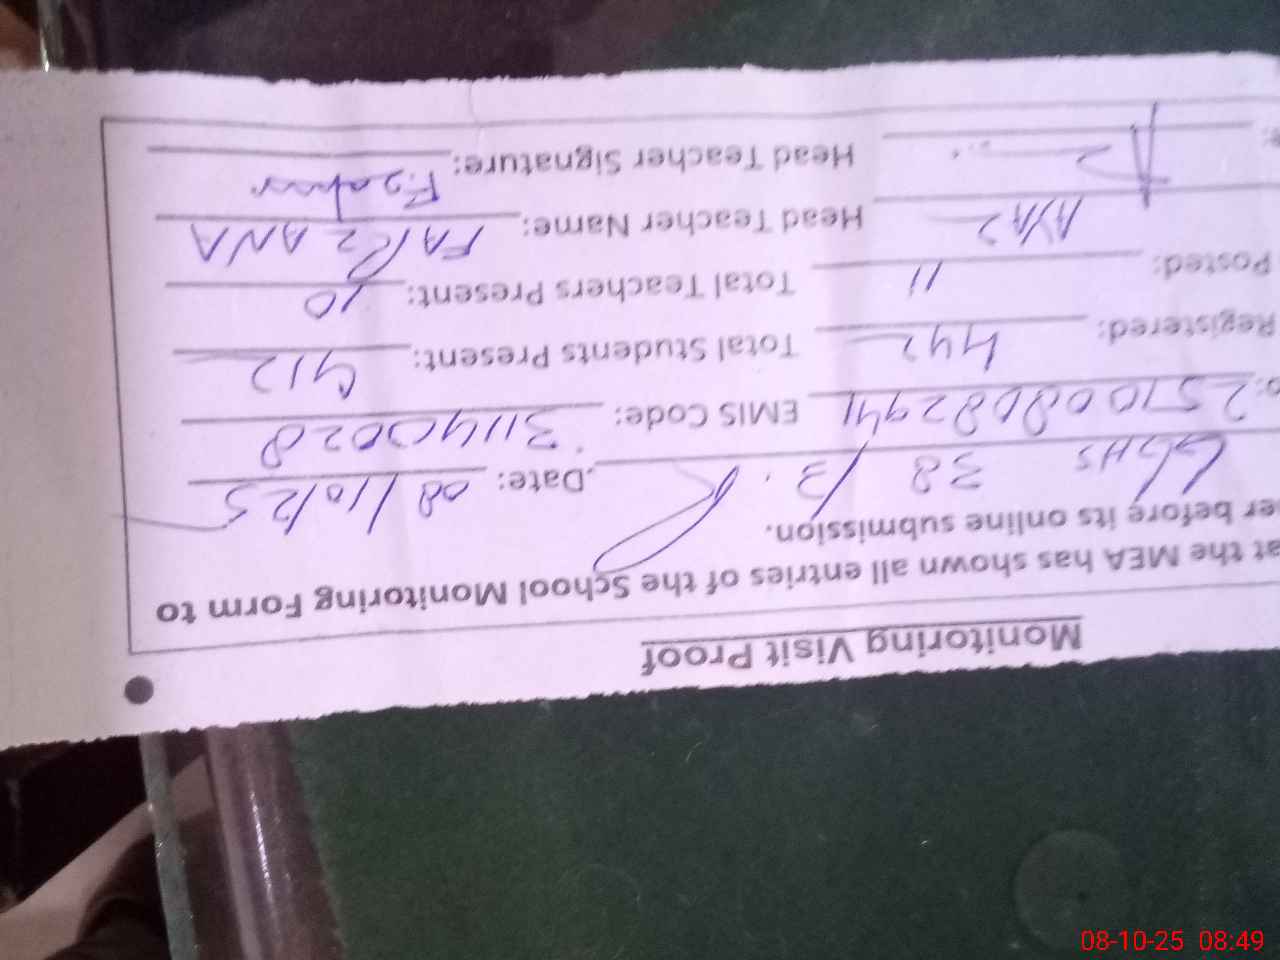 Monitoring Visit Proof
at the MEA has shown all entries of the School Monitoring Form to
er before its online submission.
GGHS 38 /3.R Date: 08/10/25
251008082941 EMIS Code: 31140028
Registered: 442 Total Students Present: 412
Posted: 11 Total Teachers Present: 10
Head Teacher Name:
Head Teacher Signature:
08-10-25 08:49